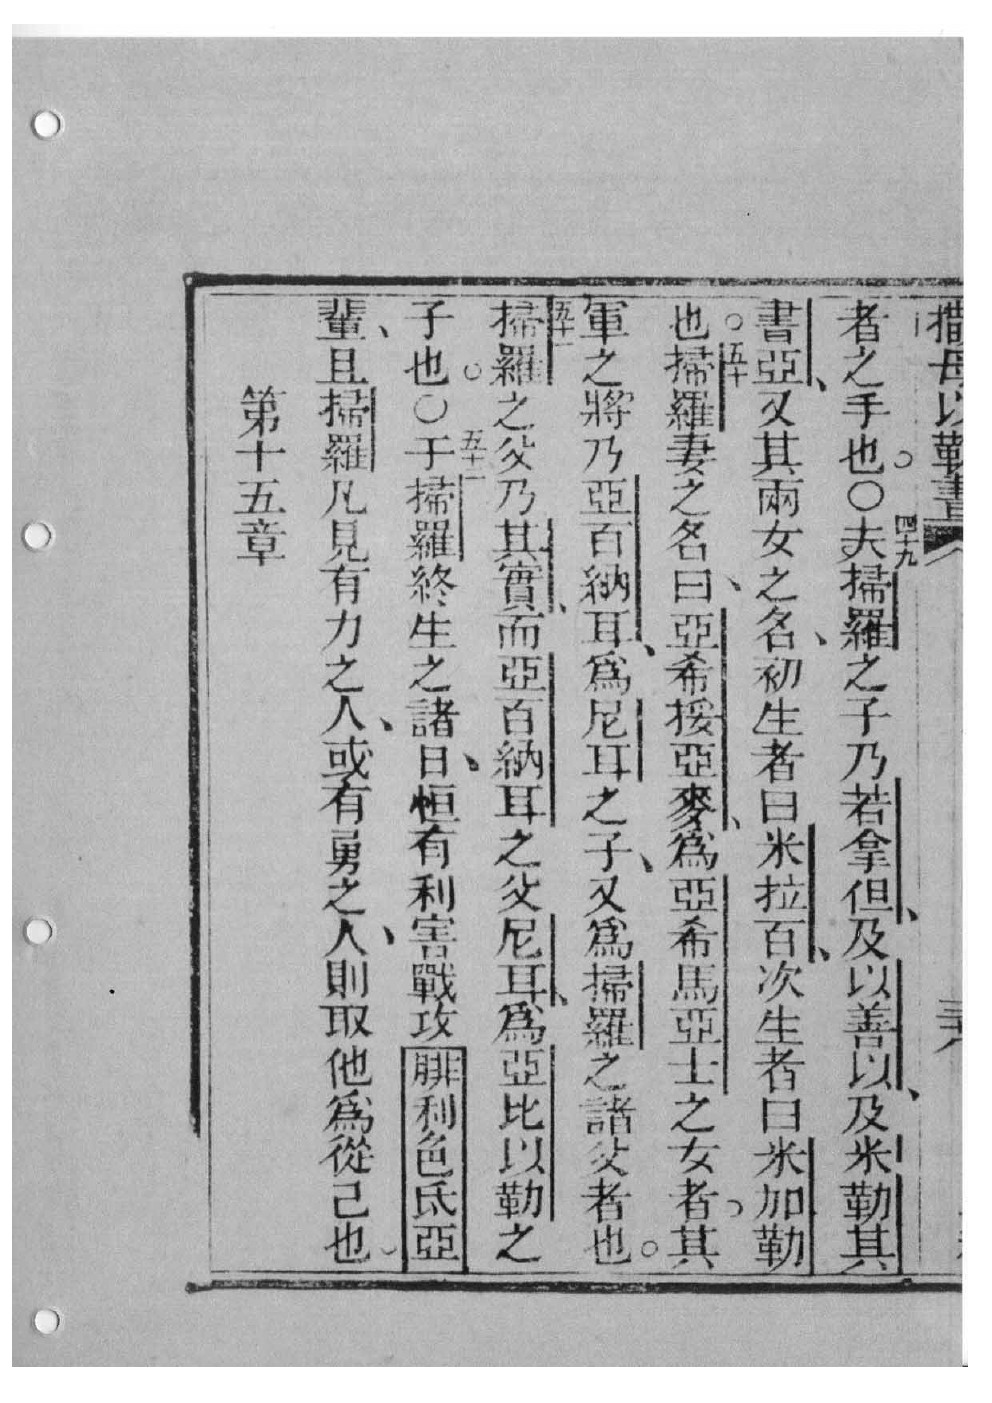 撒母以勒書
者之手也。〇四十九夫掃羅之子乃若拿但、及以善以、及米勒其
書亞、又其兩女之名、初生者曰米拉百、次生者曰米加勒
也。五十掃羅妻之名曰、亞希挼亞麥、爲亞希馬亞士之女者。其
軍之將乃亞百納耳、爲尼耳之子、又爲掃羅之諸父者也。
五十一掃羅之父乃其實、而亞百納耳之父尼耳、爲亞比以勒之
子也。〇五十二于掃羅終生之諸日、恒有利害戰攻腓利色氐亞
輩、且掃羅凡見有力之人、或有勇之人、則取他爲從己也。
第十五章